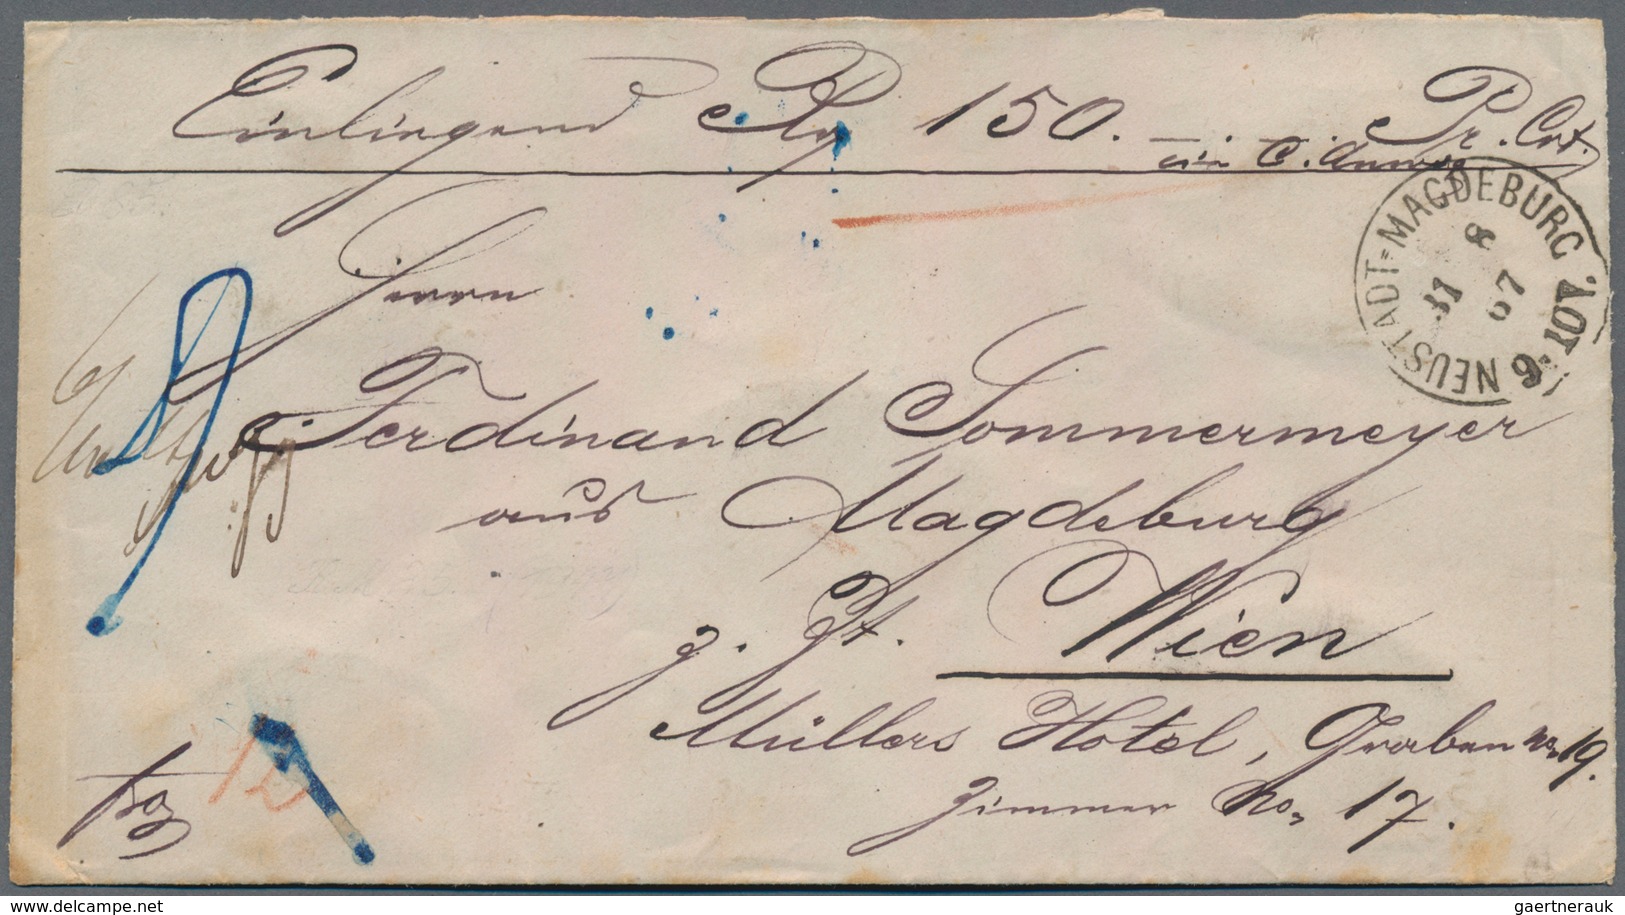 Einliegend Rg 150. Pr. Crt.
in C. Anweis
NEUSTADT-MAGDEBURG
31 8
67
Herrn
Ferdinand Sommermeyer
aus Magdeburg
z. Zt. Wien
Müllers Hotel, Graben No. 19.
Zimmer No. 17.
12
delcampe.net
gaertnerauk